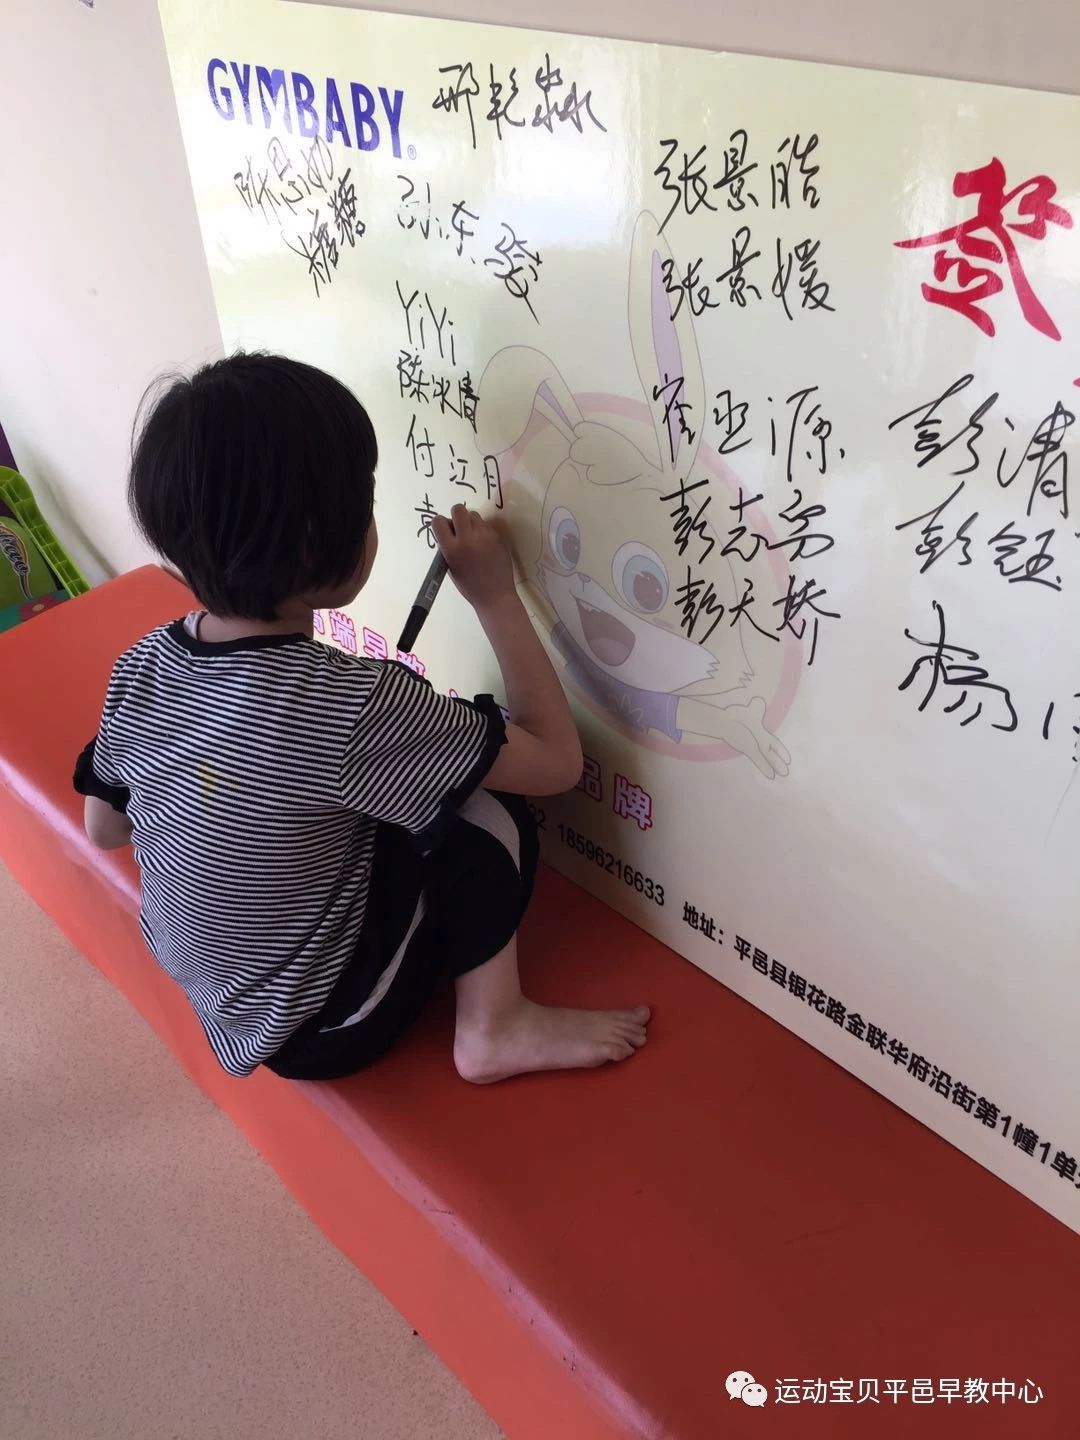 GYMBABY®
陈恩如
糖糖
孙东
YiYi
陈冰清
付江月
袁
张景皓
张景媛
崔亚源
彭志
彭天娇
彭清
彭钰
杨
高端早教
品牌
18596216633 地址：平邑县银花路金联华府沿街第1幢1单
运动宝贝平邑早教中心